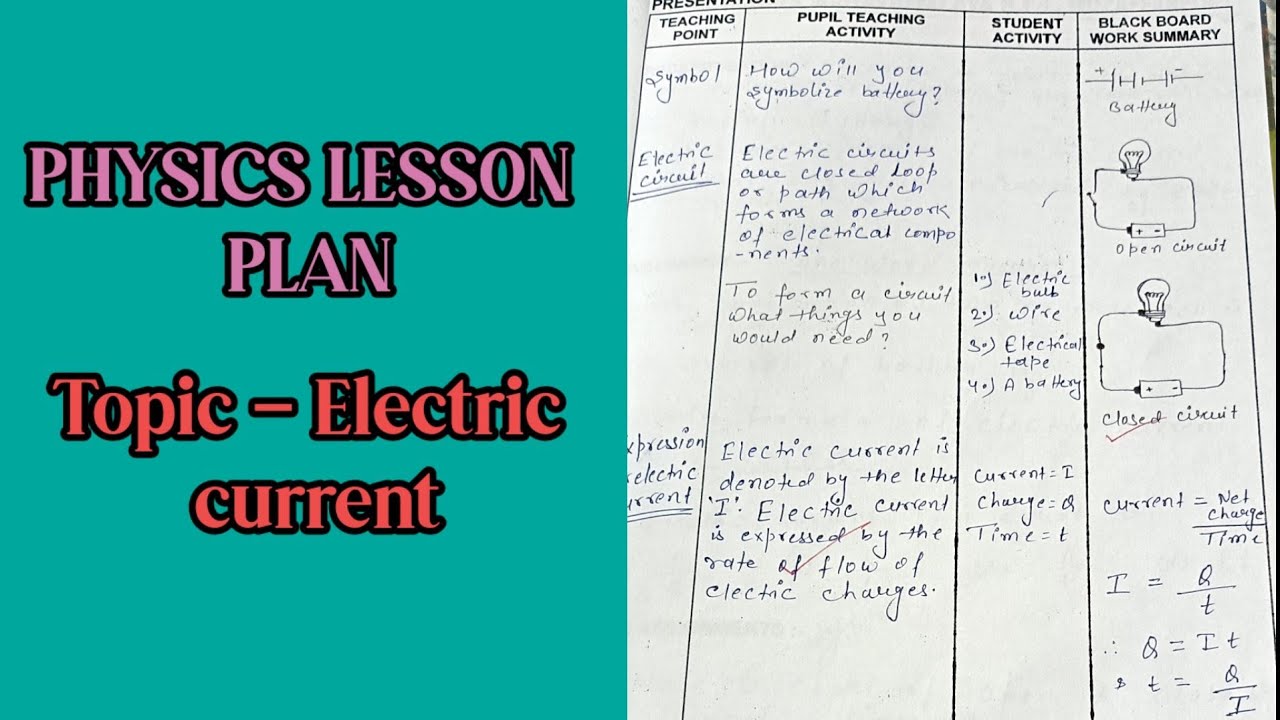 PHYSICS LESSON
PLAN
Topic – Electric
current
PRESENTATION
TEACHING
POINT
PUPIL TEACHING
ACTIVITY
STUDENT
ACTIVITY
BLACK BOARD
WORK SUMMARY
Symbol
How will you
symbolize battery?
+ -
Battery
Electric
circuit
Electric circuits
are closed loop
or path which
forms a network
of electrical compo
-nents.
+ -
open circuit
To form a circuit
what things you
would need?
1.) Electric
bulb
2.) wire
3.) Electrical
tape
4.) A battery
+ -
closed circuit
xpression
electric
urrent
Electric current is
denoted by the letter
'I'. Electric current
is expressed by the
rate of flow of
electric charges.
Current = I
Charge = Q
Time = t
current = Net
charge
Time
I = Q
t
∴ Q = I t
& t = Q
I